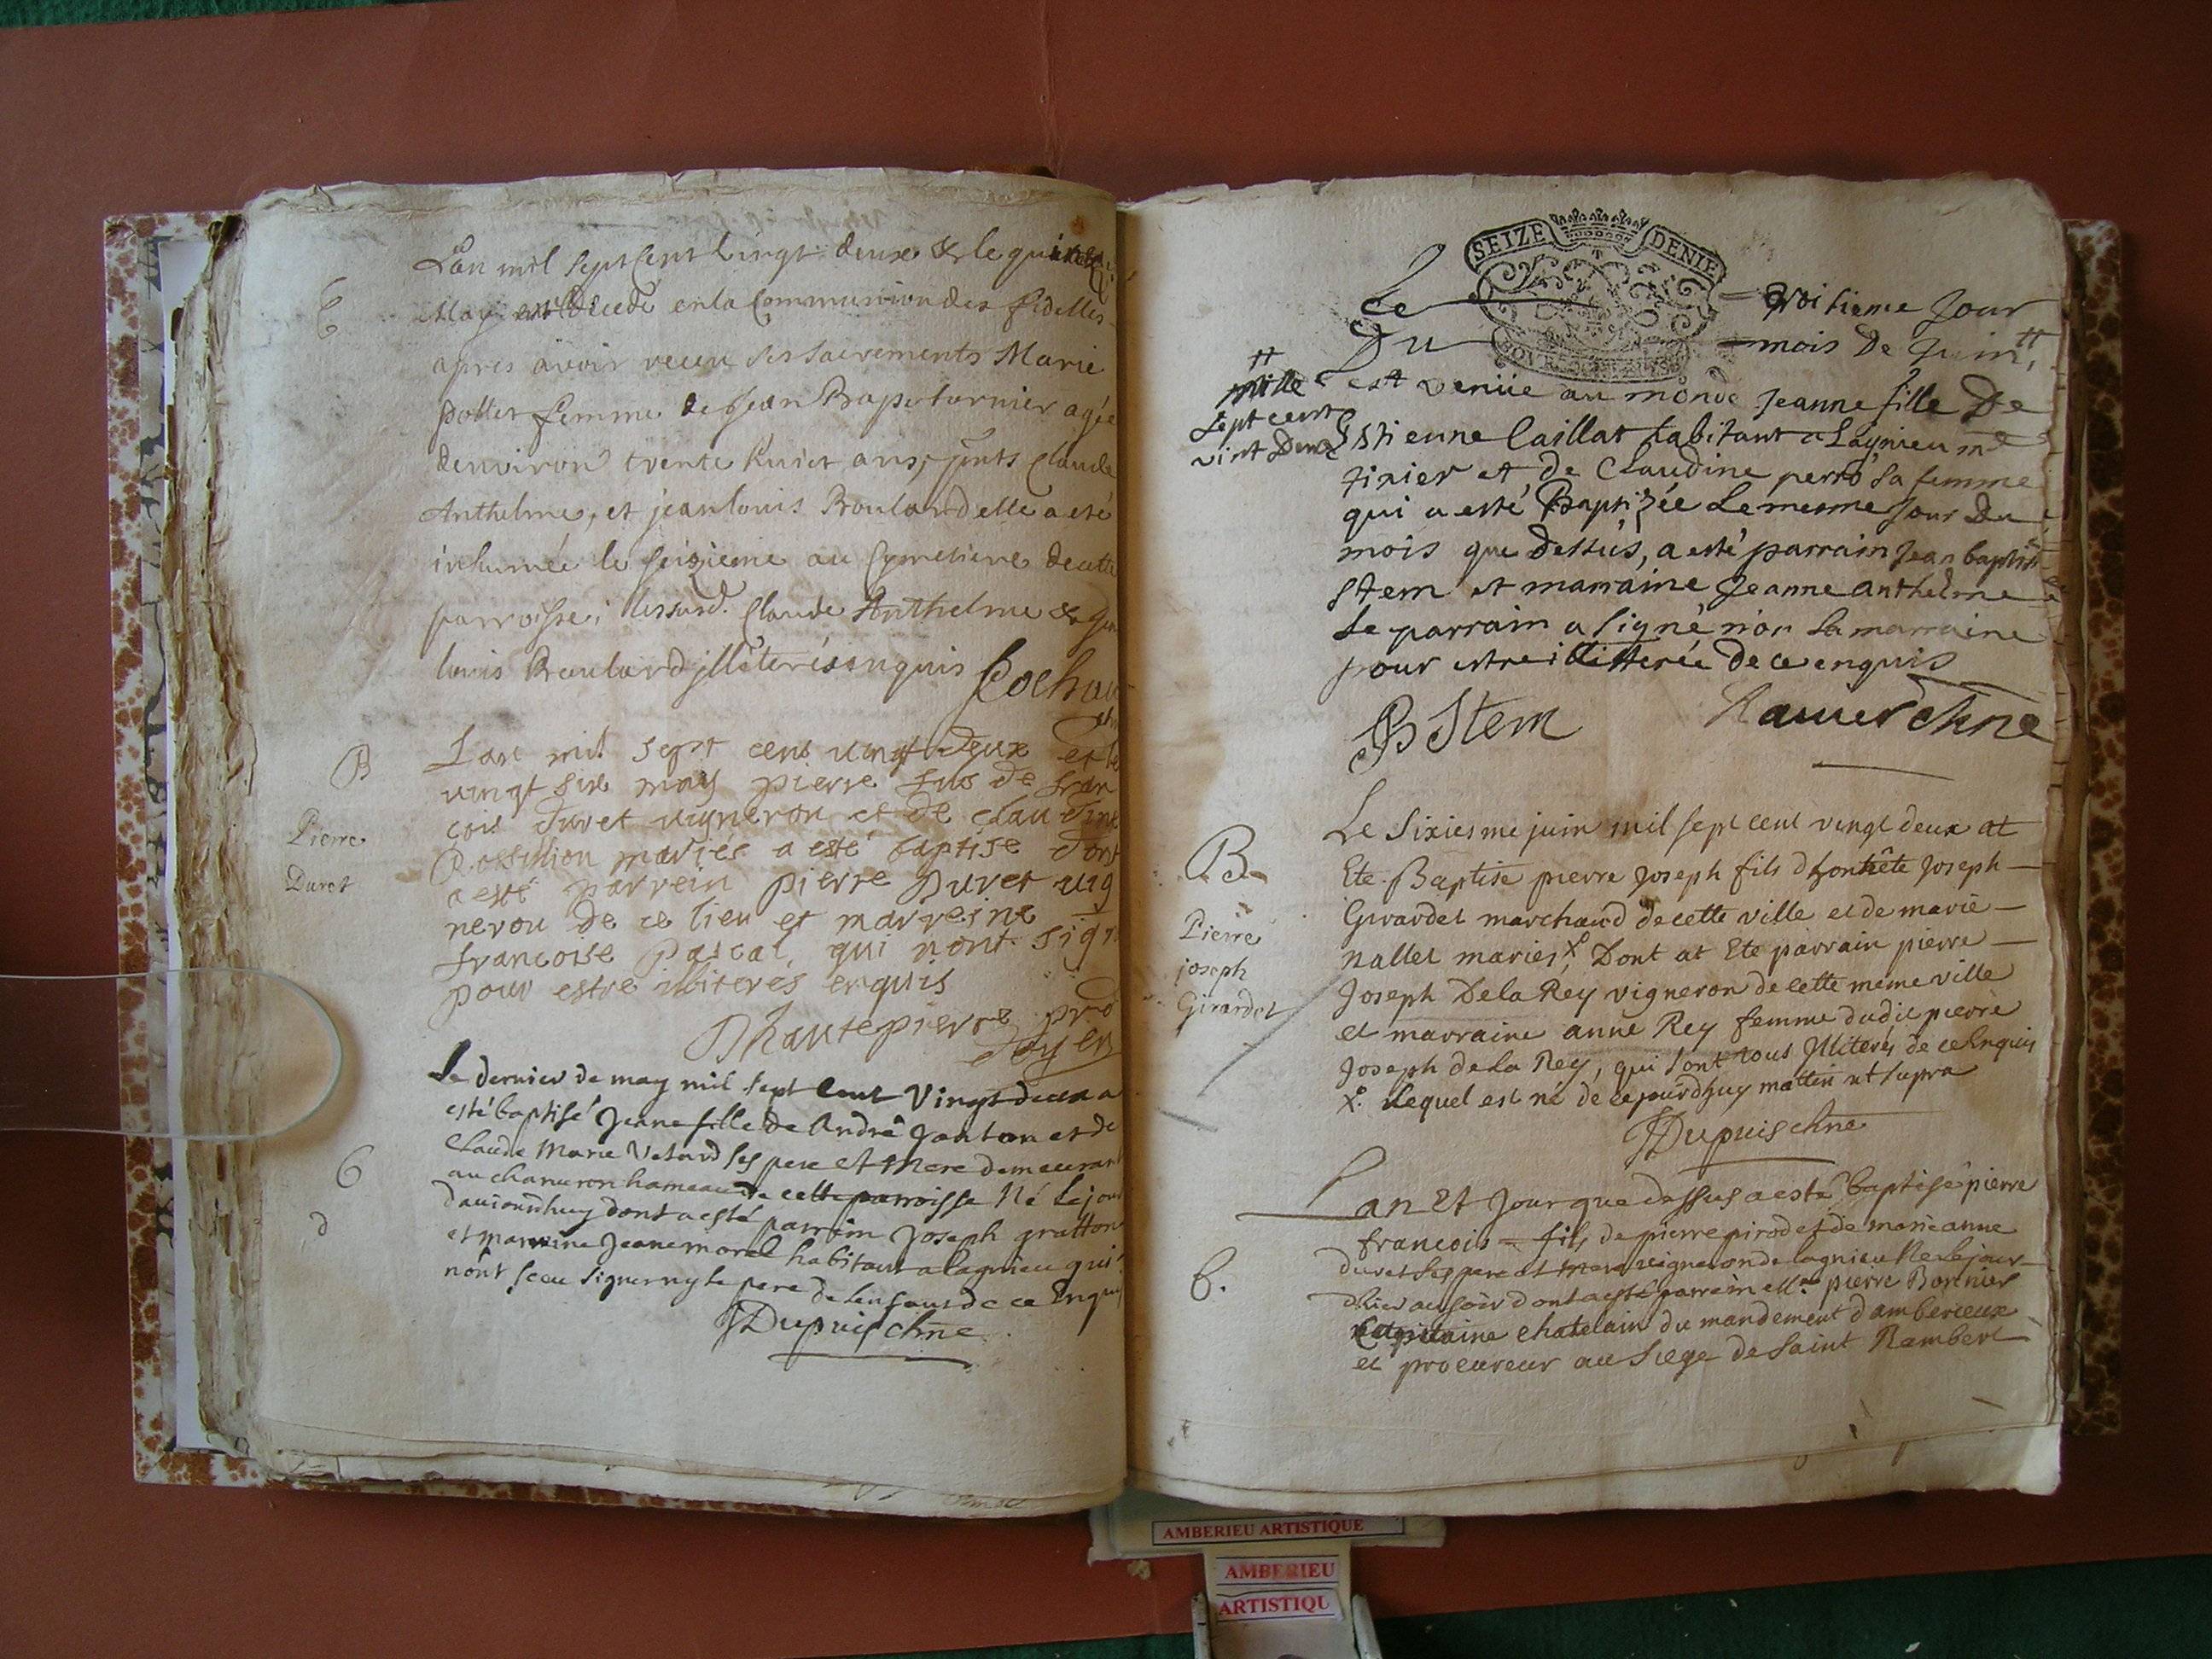 Lan mil sept cent vingt deux & le quinze
May est decedé en la Communion des fidelles
apres avoir receu ses sacrements Marie
pollet femme de Jean Bap turnier agée
denviron trente huict ans, pnts Claude
Anthelme, et jean louis Roulard elle a eté
inhumée le seizieme au Cymetiere de cette
parroisse, lessusd. Claude Anthelme &
louis Roulard jlletérés enquis Cochon
B
Lan mil sept cens vingt deux et le
vingt six may pierre fils de fran
cois Duret vigneron et de claudine
mariés a esté baptise dont
a esté parrein pierre Duret vig
neron de ce lieu et marreine
francoise pascal, qui nont sign
pour estre illiterés enquis
Dhautepierre
Pierre
Duret
Le dernier de may mil sept cent Vingt deux a
esté baptisé Jeane fille de André Janton et de
Claude Marie Vetard ses pere et Mere demeurant
au charveron hameau de cette parroisse Né le jour
daujourdhuy dont a esté parrein Joseph gratton
et marreine Jeane morel habitant a lagnieu qui
nont sceu signer ny le pere de lenfant de ce Enquis
JDupuis chne
SEIZE DENIE
Le troisieme Jour
Du mois De Juin ++
++
mille
sept cent
vint Deux
est veniie au monde Jeanne fille De
Estienne Caillat habitant a Lagnieu me
tixier et de Claudine perro sa femme
qui a esté Baptizée Le mesme Jour Du
mois que dessus, a esté parrain Jean baptiste
Stem et marraine Jeanne anthelme
Le parrain a signé non La marraine
pour estre illitterée De ce enquis
JB Stem Ravier chne
B.
Pierre
joseph
Girardet
Le Sixiesme juin mil sept cent vingt deux at
Ete Baptise pierre Joseph fils dhonnête Joseph
Girardet marchand de cette ville et de marie
nallet mariés X Dont at Ete parrain pierre
Joseph De la Rey vigneron de cette meme ville
et marraine anne Rey femme dudit pierre
Joseph de la Rey, qui sont tous Jlliterés de ce Enquis
X Lequel est né de ce jourdhuy mattin ut supra
JDupuis chne
B.
Lan Et Jour que dessus a esté baptisé pierre
francois fils de pierre pirod et de marie anne
duret ses pere et mere vigneron de lagnieu Ne le jour
dhier au soir dont a esté parrein pierre Bonnier
Capitaine chatelain du mandement damberieux
et procureur au siege de Saint Rambert
AMBERIEU ARTISTIQUE
AMBERIEU
ARTISTIQU